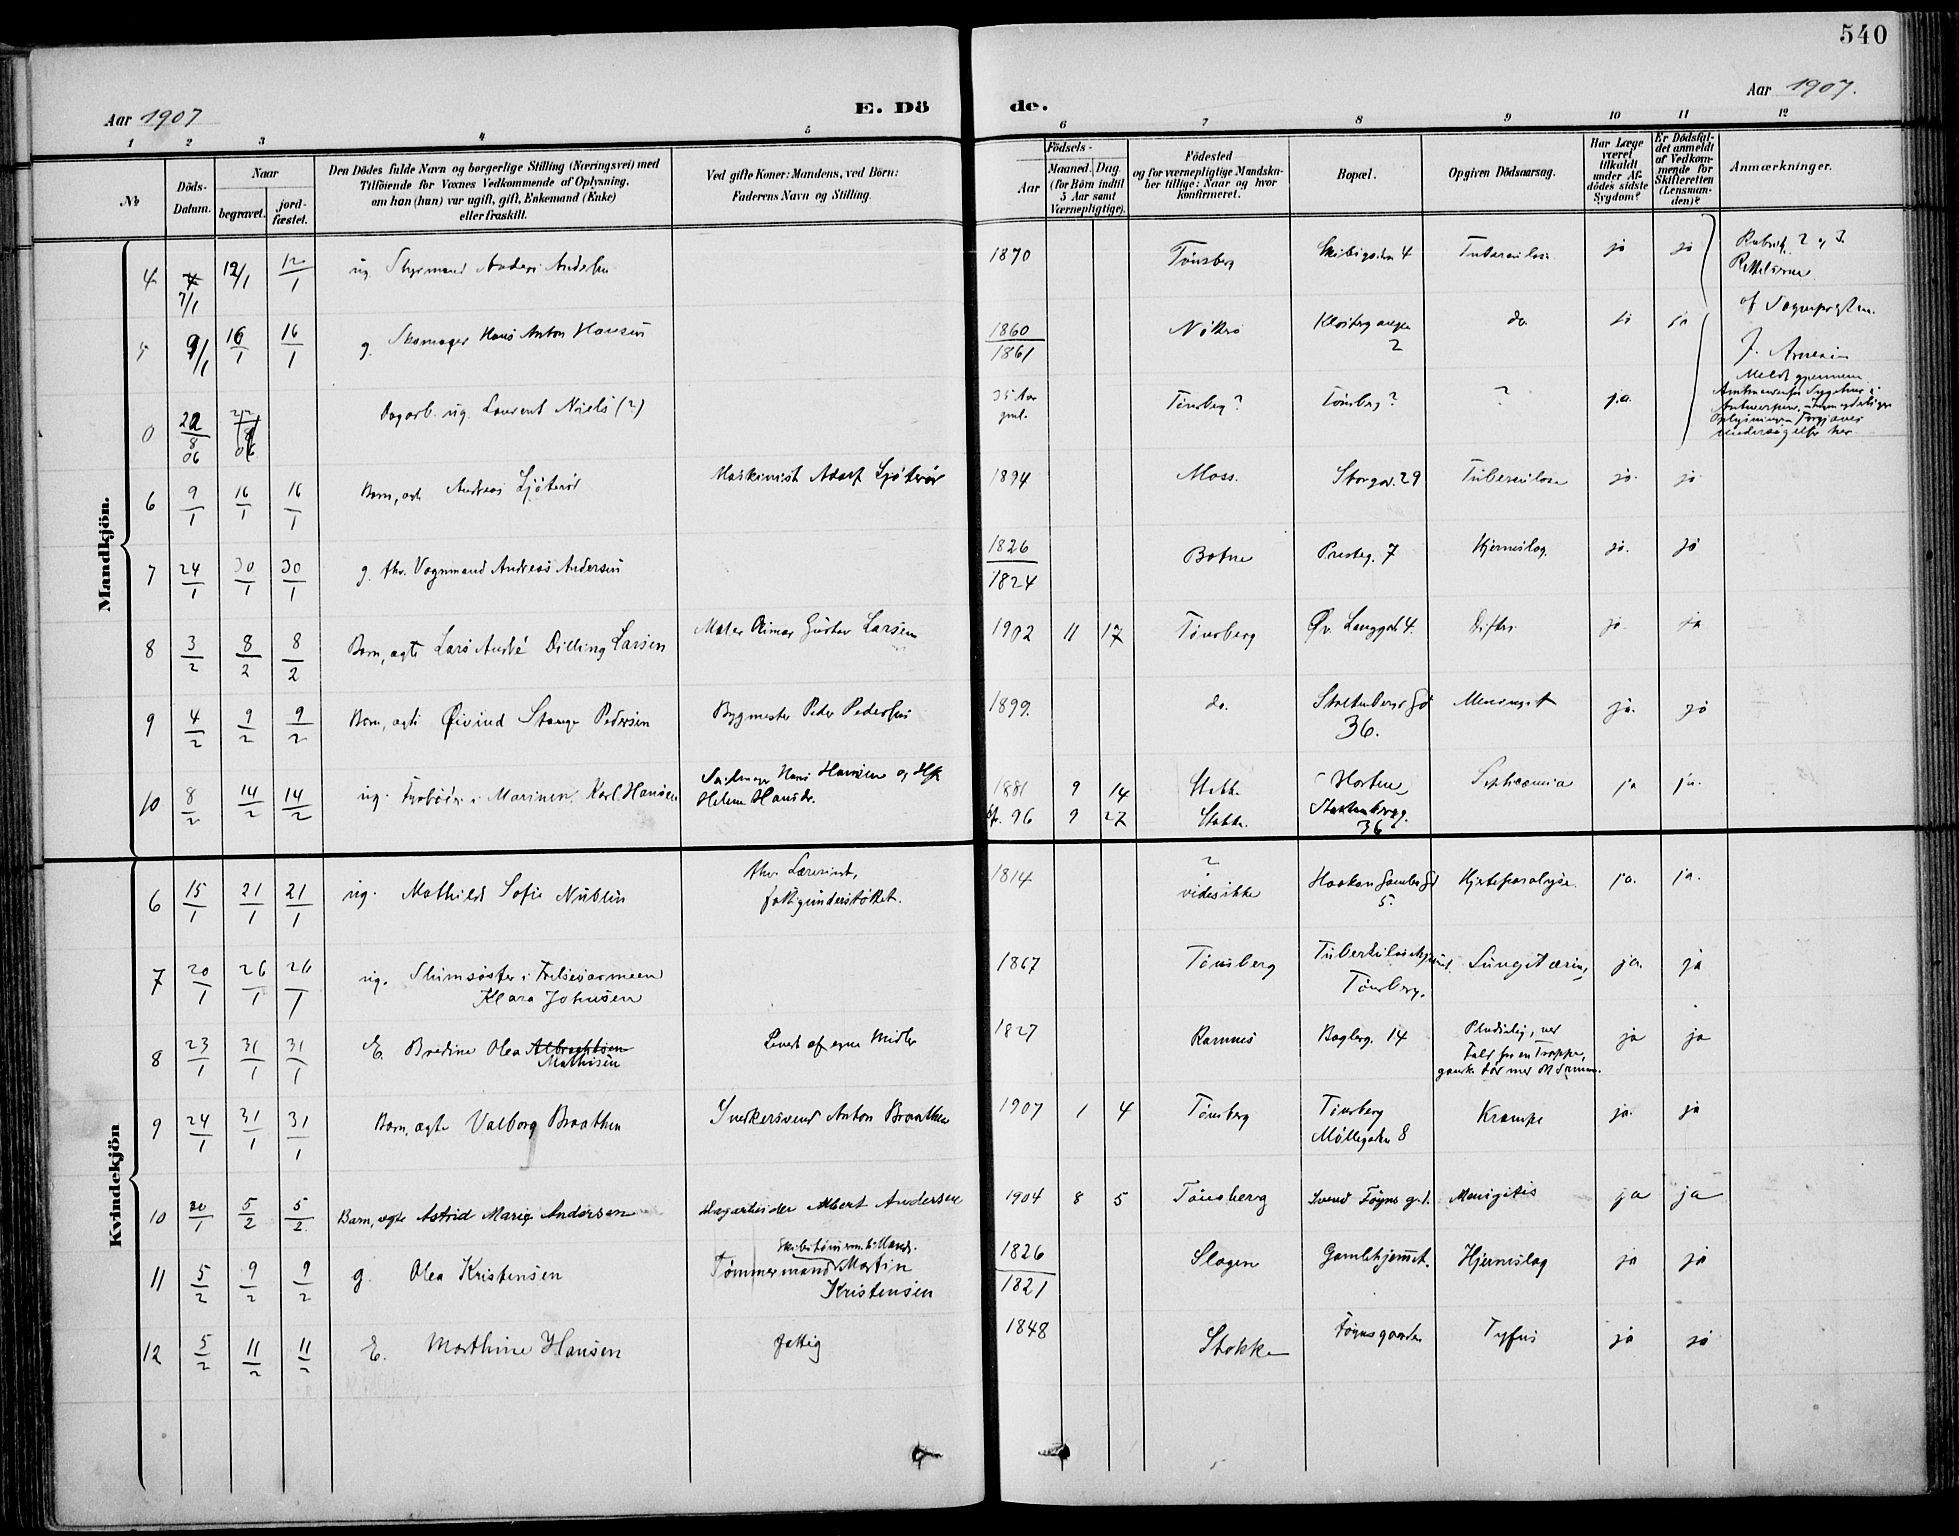 540
Aar 1907
E. Dö
de.
Aar 1907.
1 2 3 4 5 6 7 8 9 10 11 12
№
Döds-
Datum.
Naar
begravet.
jord-
fæstet.
Den Dödes fulde Navn og borgerlige Stilling (Næringsvei) med
Tilföiende for Voxnes Vedkommende af Oplysning,
om han (hun) var ugift, gift, Enkemand (Enke)
eller fraskilt.
Ved gifte Koner: Mandens, ved Börn:
Faderens Navn og Stilling.
Födsels-
Aar
Maaned.
Dag
(for Börn indtil
5 Aar samt
Værnepligtige).
Födested
og for værnepligtige Mandska-
ber tillige: Naar og hvor
konfirmeret.
Bopæl.
Opgiven Dödsaarsag.
Har Læge
været
tilkaldt
under Af-
dödes sidste
Sygdom?
Er Dödsfal-
det anmeldt
af Vedkom-
mende for
Skifteretten
(Lensman-
den)?
Anmærkninger.
Mandkjön.
4 7/1 12/1 12/1 ug. Styrmand Anders 1870 Tönsberg 4 Tuberculose ja ja
Rubrik 2 og 3
Rettelserne
af Sognepresten
5 9/1 16/1 16/1 g. Skomager Hans Anton Hansen 1860/1861 Nøtterø 2 do ja ja
0 22/8 06 Dagarb. ug. Laurent Niels (?) 35 Aar gml. Tönsberg? Tönsberg? ? ja.
Meldt gjennem
Antwerpen
her
6 9/1 16/1 16/1 Barn, ægte Andreas Maskinist Adolf 1894 Moss. Storgd. 29 Tuberculose ja. ja.
7 24/1 30/1 30/1 g. fhv. Vognmand Andreas Andersen 1826/1824 Botne Presteg. 7 Hjerneslag ja. ja
8 3/2 8/2 8/2 Barn, ægte Lars André Dilling Larsen Maler Gustav Larsen 1902 11 17 Tönsberg Øv. Langgd. 4. Difteri ja. ja
9 4/2 9/2 9/2 Barn, ægte Øivind Stange Pedersen Bygmester Peder Pedersen 1899. do. Stoltenbergs Gd
36. Meningit ja. ja
10 8/2 14/2 14/2 ug. Fyrbøder i Marinen, Karl Hansen Hans Hansen og Hst.
Helene Hansdr. 1881 9 14 Stokke Horten Septicæmia ja ja.
96 9 27 Stokke Stoltenbergg.
36
Kvindekjön
6 15/1 21/1 21/1 ug. Mathilde Sofie Nublin fhv. Lærerinde,
fattigunderstøttet. 1814 ?
vides ikke Haakon Gamles Gd
5. Hjerteparalyse. ja. ja.
7 20/1 26/1 26/1 ug. Slumsøster i Frelsesarmeen
Klara Johnsen 1867 Tönsberg
Tönsberg. Lungetæring ja. ja
8 23/1 31/1 31/1 E. Bredine Olea Albrechtsen
Mathisen Levet af egne Midler 1827 Ramnes Bagberg. 14 Pludselig, ved
Fald fra en Trappe,
ja ja
9 24/1 31/1 31/1 Barn, ægte Valborg Braathen Snedkersvend Anton Braathen 1907 1 4 Tönsberg Tönsberg
Møllegaden 8 Krampe ja. ja
10 30/1 5/2 5/2 Barn, ægte Astrid Marie Andersen Dagarbeider Albert Andersen 1904 8 5 Tönsberg Svend Føyns gd. Menigitis ja ja
11 5/2 9/2 9/2 g. Olea Kristensen Skibstømrm.
Tømmermand Martin
Kristensen 1826/1821 Slagen Gamlehjemmet. Hjerneslag ja ja
12 5/2 11/2 11/2 E. Marthine Hansen Fattig 1848 Stokke Føynsgaarden Tyfus ja ja